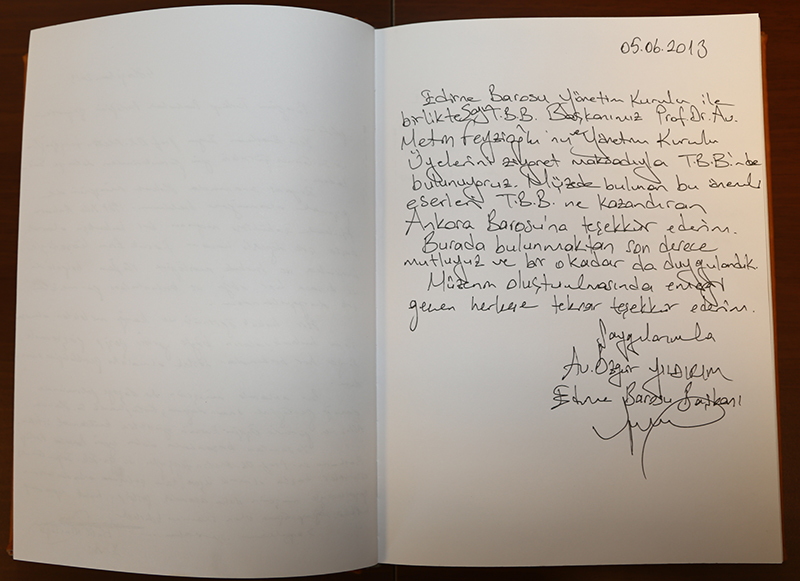 05.06.2013
Edirne Barosu Yönetim Kurulu ile
birlikte Sayın T.B.B. Başkanımız Prof.Dr.Av.
Metin Feyzioğlu'nu ve Yönetim Kurulu
Üyelerini ziyaret maksadıyla T.B.B'inde
bulunuyoruz. Müzede bulunan bu önemli
eserleri T.B.B. ne kazandıran
Ankara Barosu'na teşekkür ederim.
Burada bulunmaktan son derece
mutluyuz ve bir o kadar da duygulandık.
Müzenin oluşturulmasında emeği
geçen herkese tekrar teşekkür ederim.
Saygılarımla
Av. Özgür YILDIRIM
Edirne Barosu Başkanı